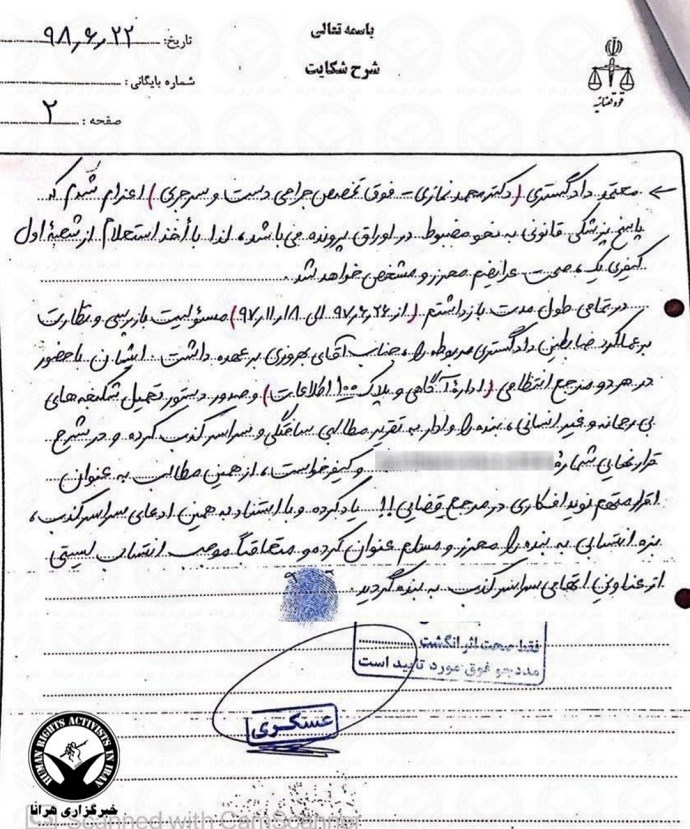 باسمه تعالی
شرح شکایت
قوه قضائیه
تاریخ: ۹۸٫۶٫۲۲
شماره بایگانی:
صفحه: ۲
معتمد دادگستری (دکتر محمد نمازی – فوق تخصص جراحی دست و سرجری) اعزام شدم که
پاسخ پزشکی قانونی به نحو مضبوط در اوراق پرونده می‌باشد، لذا با أخذ استعلام از شعبهٔ اول
کیفری یک، صحت عرایضم محرز و مشخص خواهد شد.
در تمامی طول مدت بازداشتم (از ۹۷٫۶٫۲۶ الی ۹۷٫۱۱٫۱۸) مسئولیت بازرسی و نظارت
بر عملکرد ضابطین دادگستری مربوطه را، جناب آقای بهروزی بر عهده داشت. ایشان با حضور
در هر دو مرجع انتظامی (ادارهٔ آگاهی و پلاک ۱۰۰ اطلاعات) و صدور دستور تحمیل شکنجه‌های
بی رحمانه و غیر انسانی، بنده را وادار به تقریر مطالبی ساختگی و سراسر کذب کرده و در شرح
قرار نهایی شمارهٔ و کیفرخواست، از همین مطالب به عنوان
اقرار متهم نوید افکاری در مرجع قضایی!! یاد کرده و با استناد به همین ادعای سراسر کذب،
بزه انتسابی به بنده را محرز و مسلم عنوان کرده و متعاقباً موجب انتساب لیستی
از عناوین اتهامی سراسر کذب به بنده گردید.
فقط صحت اثر انگشت
مددجو فوق مورد تأیید است
عسکری
HUMAN RIGHTS ACTIVISTS IN IRAN
خبرگزاری هرانا
Scanned with CamScanner